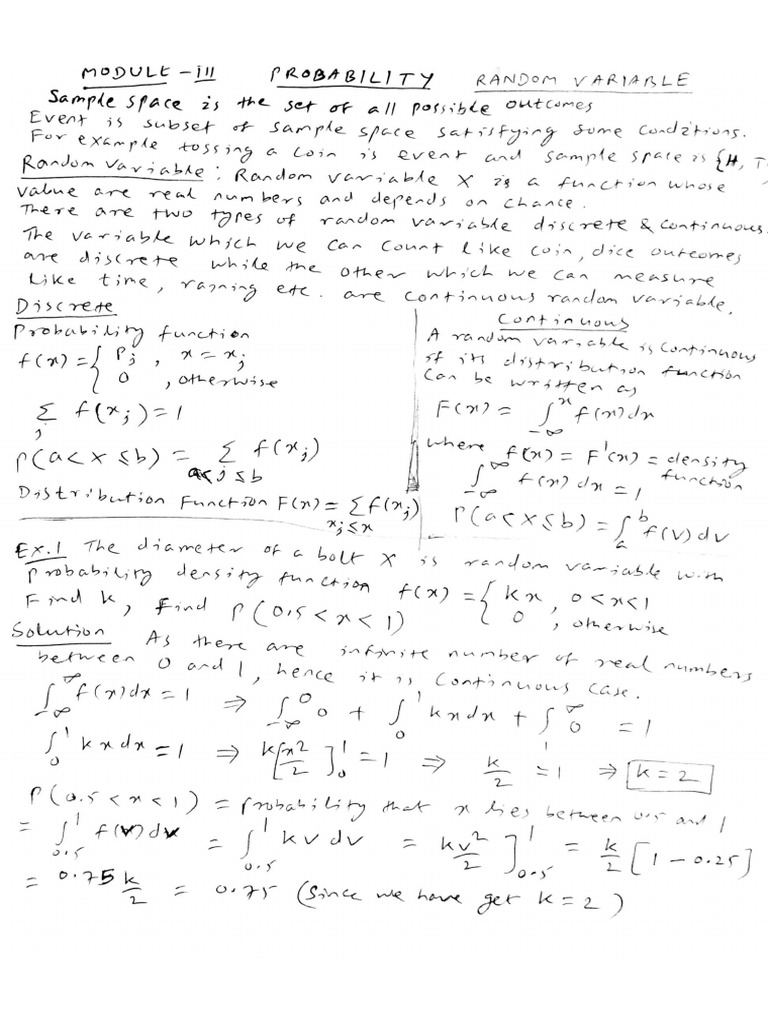 MODULE - III PROBABILITY RANDOM VARIABLE
Sample space is the set of all possible outcomes
Event is subset of sample space satisfying some conditions.
For example tossing a coin is event and sample space is {H, T
Random Variable: Random variable X is a function whose
value are real numbers and depends on chance.
There are two types of random variable discrete & continuous.
The variable which we can count like coin, dice outcomes
are discrete while the other which we can measure
like time, raining etc. are continuous random variable.
Discrete
Probability function
f(x) = { Pj , x = xj
0 , otherwise
∑j f(xj) = 1
P(a < X ≤ b) = ∑ a<j≤b f(xj)
Distribution Function F(x) = ∑ xj≤x f(xj)
Continuous
A random variable is continuous
if its distribution function
can be written as
F(x) = ∫_{-∞}^{x} f(x) dx
where f(x) = F'(x) = density
function
∫_{-∞}^{∞} f(x) dx = 1
P(a < X ≤ b) = ∫_a^b f(v) dv
Ex.1 The diameter of a bolt X is random variable with
probability density function f(x) = { kx , 0 < x < 1
0 , otherwise
Find k, Find P(0.5 < x < 1)
Solution As there are infinite number of real numbers
between 0 and 1, hence it is continuous case.
∫_{-∞}^{∞} f(x) dx = 1 ⇒ ∫_{-∞}^{0} 0 + ∫_0^1 kx dx + ∫_1^{∞} 0 = 1
∫_0^1 kx dx = 1 ⇒ k[x²/2]_0^1 = 1 ⇒ k/2 = 1 ⇒ k = 2
P(0.5 < x < 1) = probability that x lies between 0.5 and 1
= ∫_{0.5}^1 f(v) dv = ∫_{0.5}^1 kv dv = kv²/2 ]_{0.5}^1 = k/2 [1 - 0.25]
= 0.75 k/2 = 0.75 (since we have get k = 2)